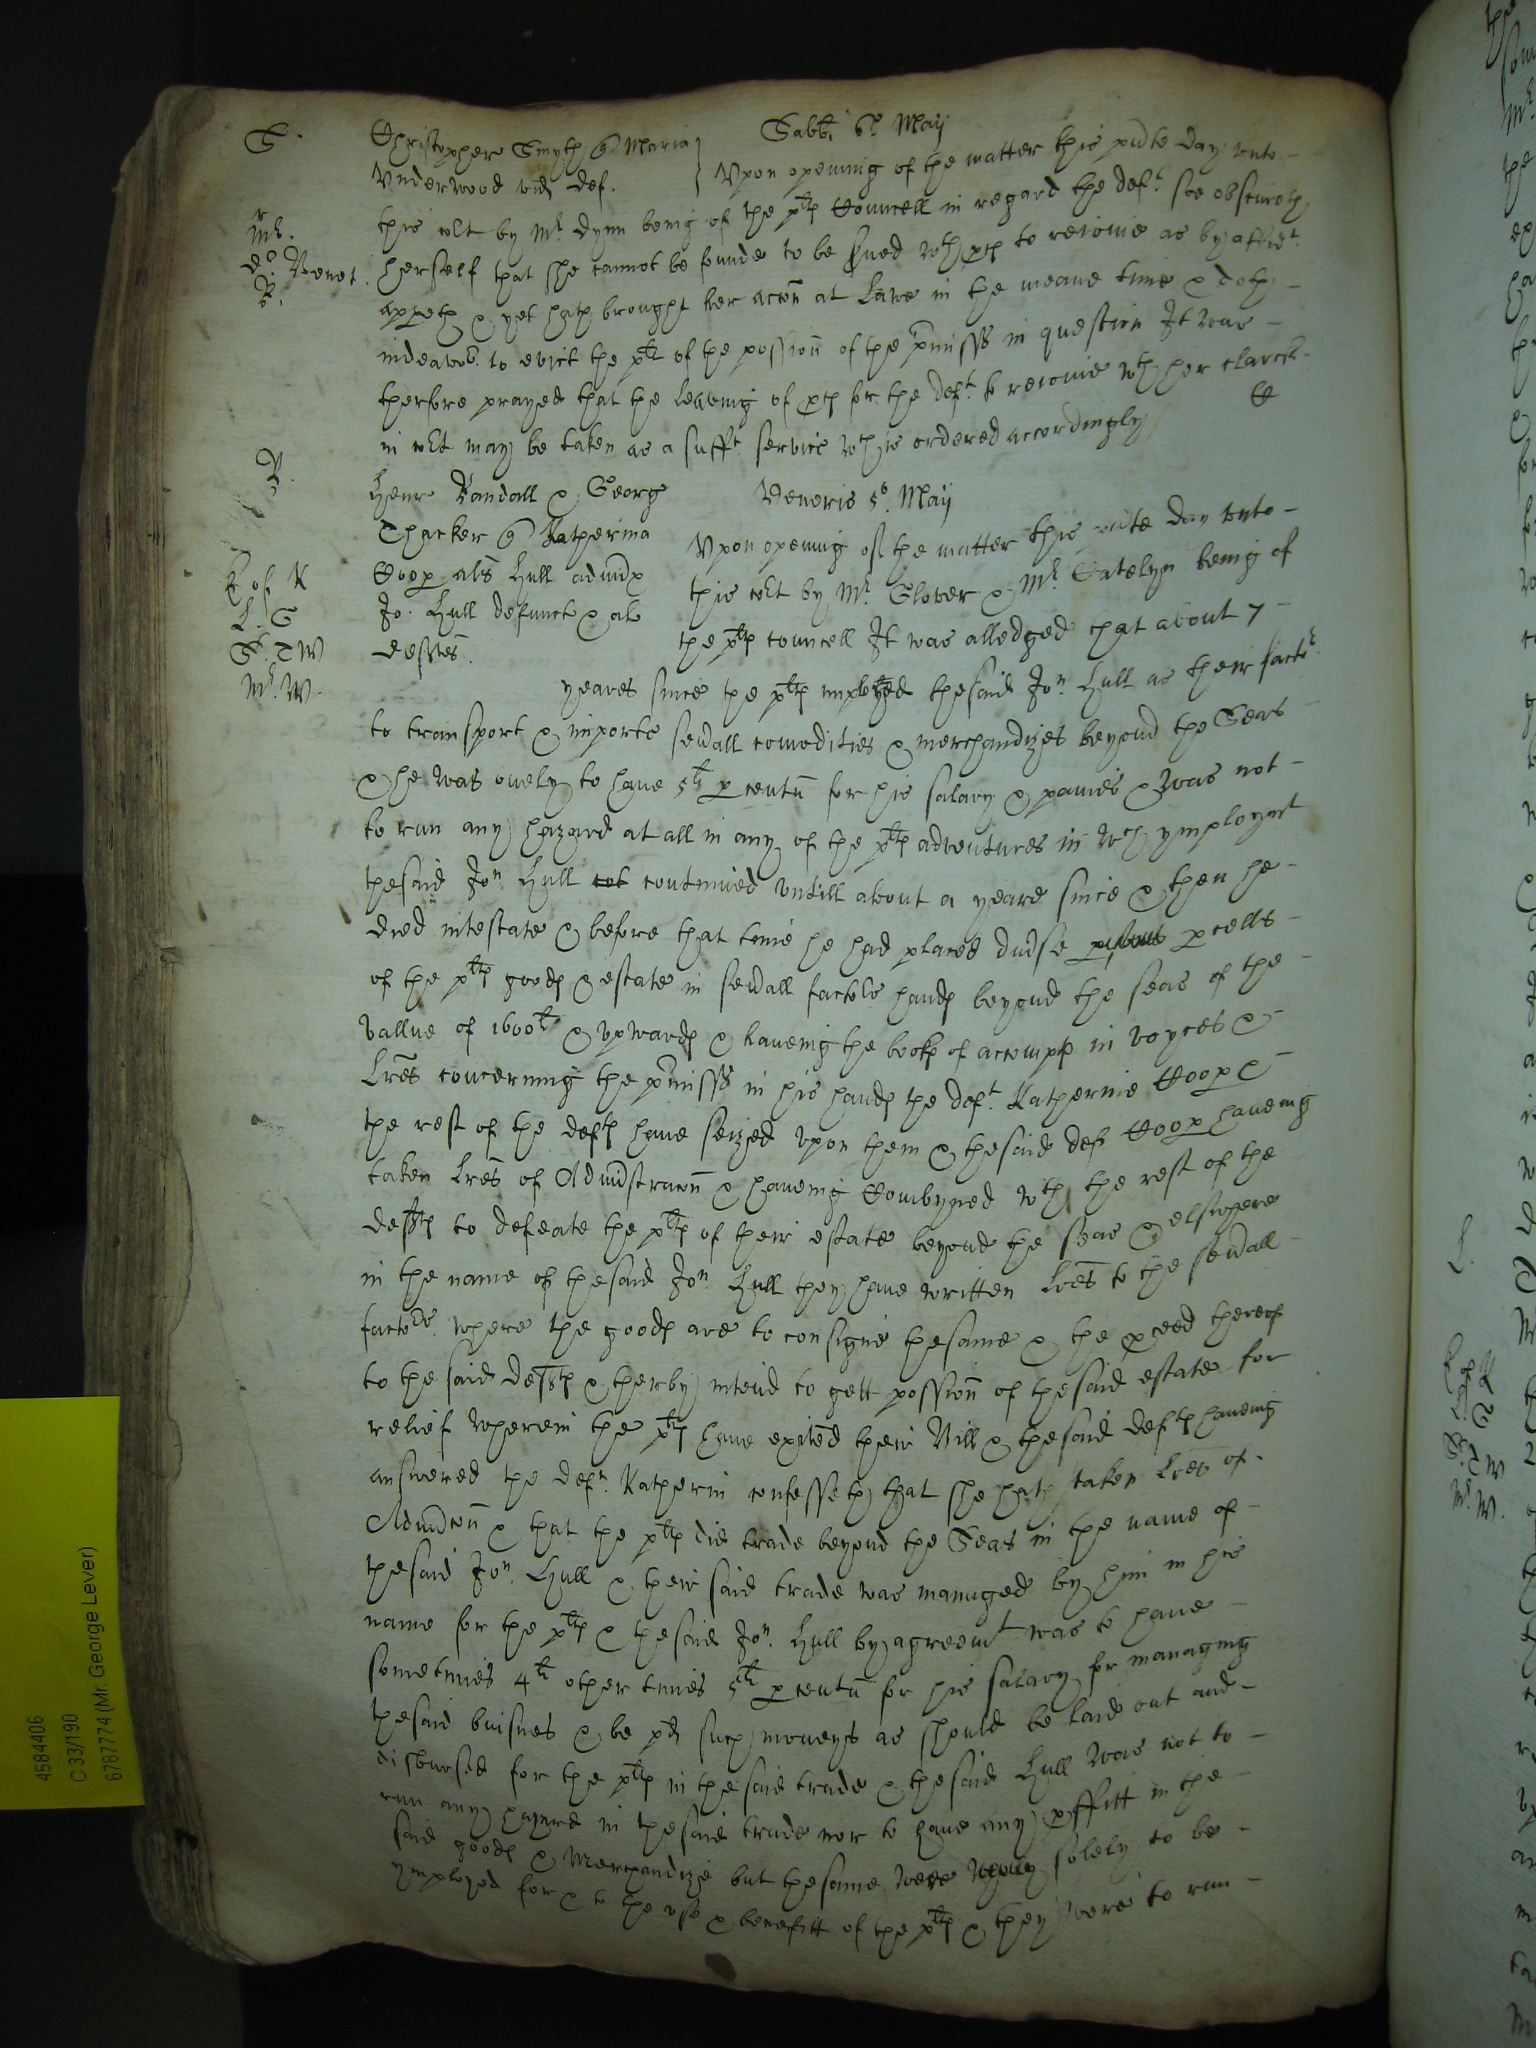 S.
Christopher Smyth & Maria
Underwood vid Def.
Sabbi 6o. Maij
Upon opening of the matter this pnte day unto
this Cort by Mr. Dynn being of the plts Councell in regard the Deft. soe obscureth
herself that she cannot be founde to be srved wth to reioine as by affidt.
appeth & yet hath brought her accon at Lawe in the meane time & doth
indeavor. to evict the plt of the possion of the pmisss in question It was
therfore prayed that the leaveing of for the Deft. to reioine wth her clarck
in Cort may be taken as a sufft. service wch is ordered accordingly
Mr.
R.
Henr Randall & George
Thacker & Katherina
Coop als Hull admx
Jo. Hull defunct & al
Defftes.
K
L. S
S. T W
Mr. W.
Veneris 5o. Maij
Upon opening of the matter this pnte day unto
this Cort by Mr. Glover & Mr. Catelyn being of
the plts councell It was alledged that about 7
yeares since the plts imployed thesaid Jon. Hull as their factor.
to transport & importe seuall comodities & merchandizes beyond the Seas
& he was onely to haue 5li p centu for his salary & paines & was not
to run any hazard at all in any of the plts adventures in wch ymploymt
thesaid Jon. Hull continued untill about a yeare since & then he
died intestate & before that time he had placed diuse pcells
of the plts goods & estate in seuall factors hands beyond the seas of the
vallue of 1600li & upwards & haueing the books of accompts in voyces &
Lres concerning the pmisss in his hands the Deft. Katherine Coop &
the rest of the Defts haue seized upon them & thesaid Def Coop haueing
taken Lres of Admstracon & haueing Combyned wth the rest of the
Deffts to defeate the plts of their estate beyond the seas & elswhere
in the name of thesaid Jon. Hull they haue written Lres to the seuall
factors. where the goods are to consigne thesame & the pceed thereof
to the said Deffts & therby intend to gett possion of thesaid estate for
relief wherein the plts haue exited their Bill & thesaid Defts haueing
answered the Deft. Katherin confesseth that she hath taken Lres of
Admcon & that the plts did trade beyond the Seas in the name of
thesaid Jon. Hull & their said trade was managed by him in his
name for the plts & thesaid Jon. Hull by agreemt was to haue
sometimes 4li other times 5li p centu for his salary for managing
thesaid buisnes & be pd such moneys as should be laid out and
disbursed for the plts in the said trade & thesaid Hull was not to
run any hazard in thesaid trade nor to haue any pffitt in the
said goods & Merchandize but thesame were solely to be
ymployed for & to the use & benefitt of the plts & they were to run
4584406
C 33/190
6787774 (Mr. George Lever)